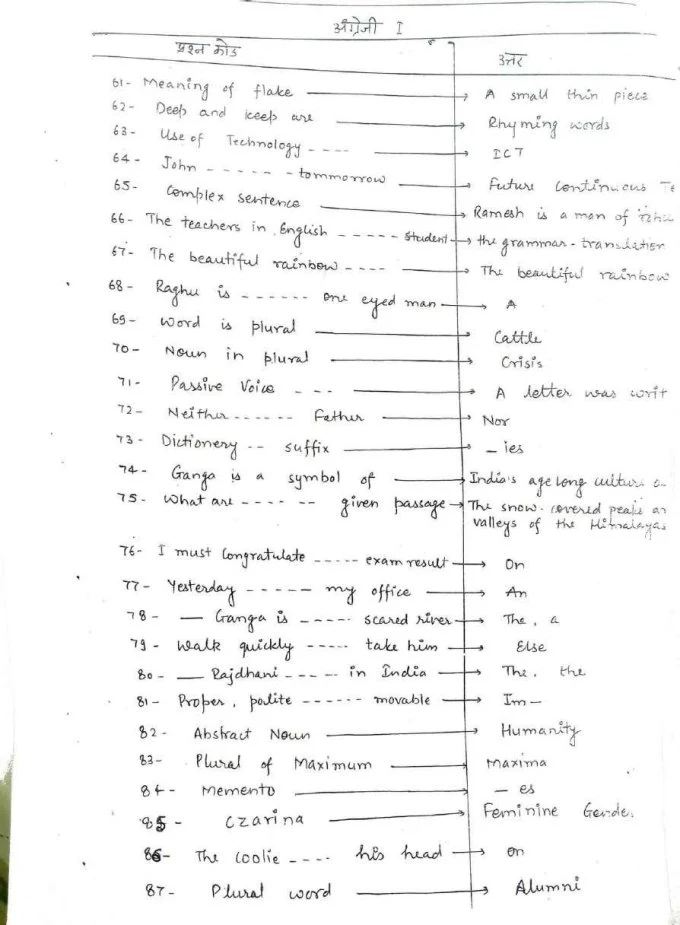 अंग्रेजी I
प्रश्न कोड उत्तर
61- Meaning of flake → A small thin piece
62- Deep and keep are → Rhyming words
63- Use of Technology ---- → ICT
64- John ------ tommorrow → Future Continuous Te
65- Complex sentence → Ramesh is a man of
66- The teachers in English ----- Student → the grammar-translation
67- The beautiful rainbow ---- → The beautiful rainbow
68- Raghu is ------ one eyed man → A
69- Word is plural → Cattle
70- Noun in plural → Crisis
71- Passive Voice --- → A letter was writ
72- Neither ------ Father → Nor
73- Dictionery -- suffix → -ies
74- Ganga is a symbol of → India's agelong culture
75- What are ---- -- given passage → The snow-covered peaks an
valleys of the Himalayas
76- I must Congratulate ----- exam result → On
77- Yesterday ----- my office → An
78- — Ganga is ----- scared river → The, a
79- Walk quickly ----- take him → Else
80- — Rajdhani ----- in India → The, the
81- Proper, polite ------ movable → Im-
82- Abstract Noun → Humanity
83- Plural of Maximum → Maxima
84- Memento → -es
85- Czarina → Feminine Gende.
86- The Coolie ---- his head → on
87- Plural word → Alumni